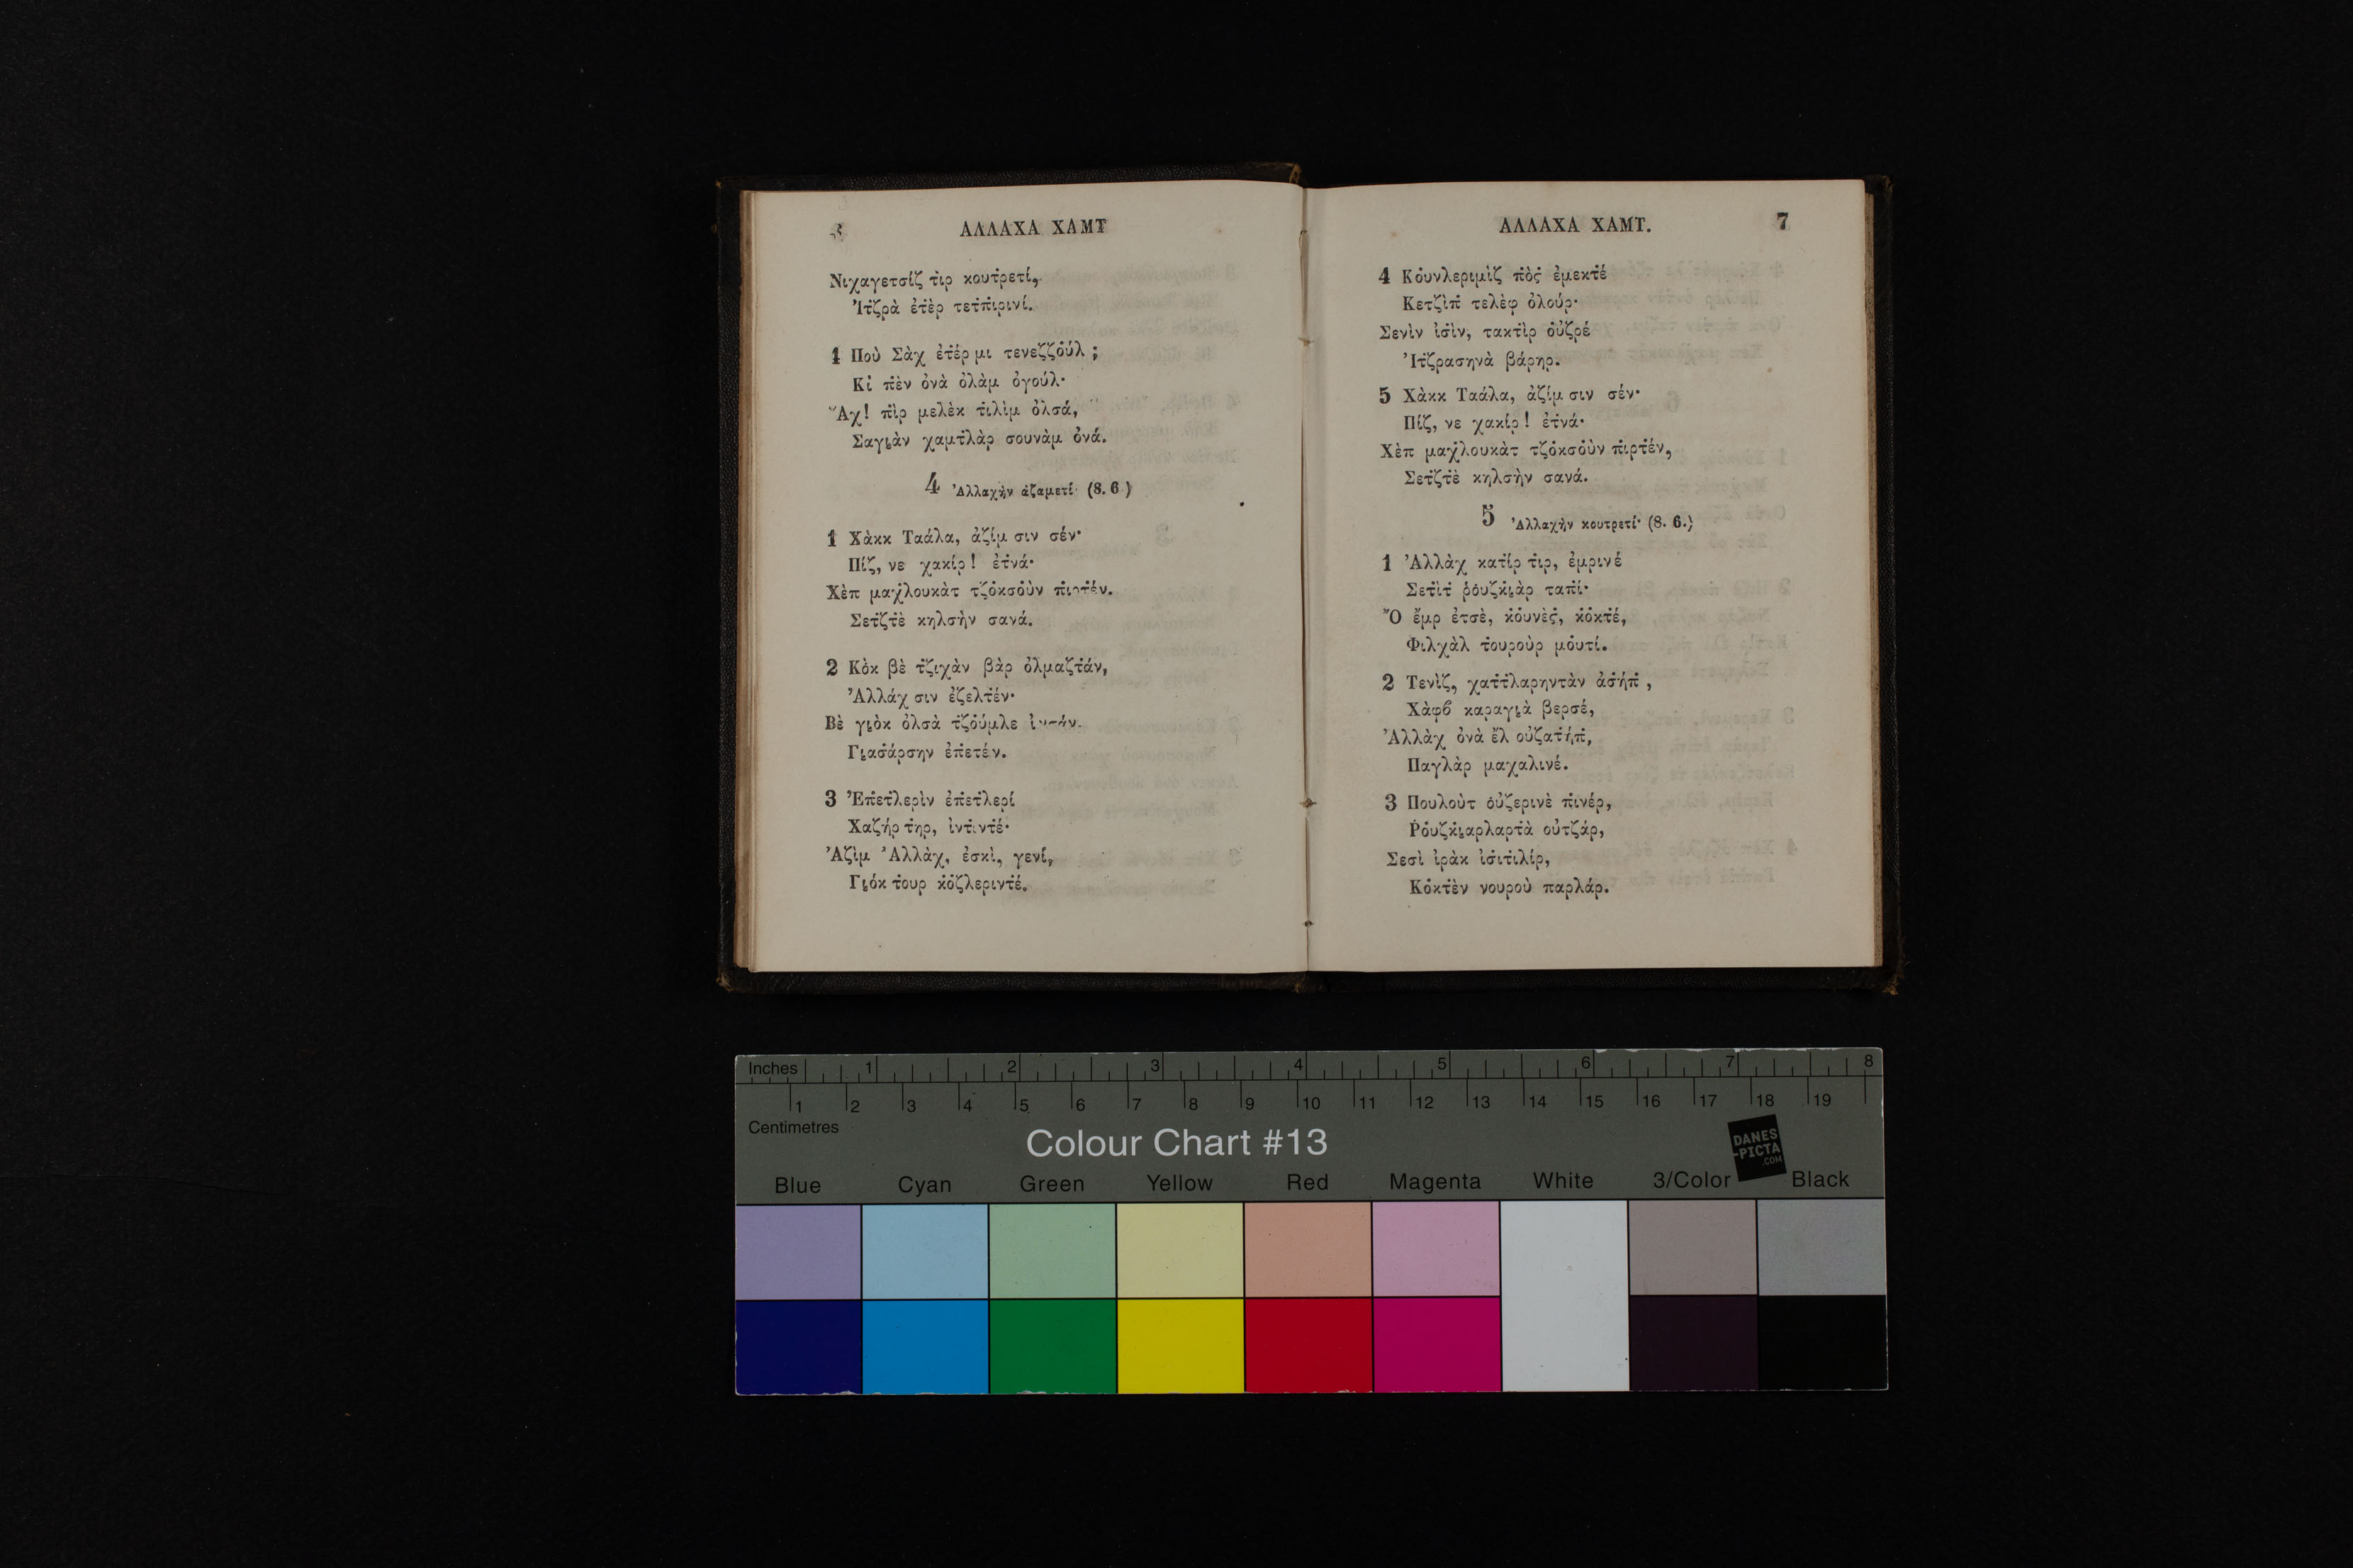 ΑΛΛΑΧΑ ΧΑΜΤ
Νιχαγετσίζ τ̇ὶρ κουτ̇ρετί,
Ἰτ̇ζρὰ ἐτ̇ὲρ τετ̇π̇ιρινί.
4 Ποὺ Σὰχ ἐτ̇έρ μι τενεζζο̇ύλ ;
Κὶ π̇ὲν ὀνὰ ὀλὰμ ὀγούλ·
Ἄχ! π̇ὶρ μελὲκ τ̇ιλὶμ ὀλσά,
Σαγι̮ὰν χαμτ̇λὰρ σουνὰμ ὀνά.
4 Ἀλλαχὴν ἀζαμετί· (8. 6)
1 Χὰκκ Ταάλα, ἀζίμ σιν σέν·
Πίζ, νε χακίρ! ἐτ̇νά·
Χὲπ μαχ̇λουκὰτ τζο̇κσο̇ὺν π̇ιρτ̇έν.
Σετ̇ζτ̇ὲ κηλσὴν σανά.
2 Κο̇κ βὲ τ̇ζιχὰν βὰρ ὀλμαζτ̇άν,
Ἀλλάχ σιν ἐζελτ̇έν·
Βὲ γι̮ὸκ ὀλσὰ τζο̇ύμλε
Γι̮ασ̇άρσην ἐπ̇ετέν.
3 Ἐπ̇ετ̇λερὶν ἐπ̇ετ̇λερί
Χαζήρ τ̇ηρ, ἰντ̇ιντ̇έ·
Ἀζὶμ Ἀλλὰχ, ἐσκὶ, γενί,
Γι̮όκ τ̇ουρ κ̇ο̇ζλεριντ̇έ.
ΑΛΛΑΧΑ ΧΑΜΤ. 7
4 Κο̇υνλεριμὶζ π̇ὸσ̇ ἐμεκτ̇έ
Κετζ̇ὶπ̇ τελὲφ ὀλούρ·
Σενὶν ἰσ̇ὶν, τακτ̇ὶρ ο̇ὐζρέ
Ἰτ̇ζρασηνὰ βάρηρ.
5 Χὰκκ Ταάλα, ἀζίμ σιν σέν·
Πίζ, νε χακίρ! ἐτ̇νά·
Χὲπ μαχ̇λουκὰτ τζο̇κσο̇ὺν π̇ιρτ̇έν,
Σετ̇ζτ̇ὲ κηλσὴν σανά.
5 Ἀλλαχὴν κουτρετί· (8. 6.)
1 Ἀλλὰχ κατ̇ίρ τ̇ιρ, ἐμρινέ
Σετ̇ὶτ ῥο̇υζκι̮ὰρ ταπί·
Ὂ ἔμρ ἐτσὲ, κ̇ο̇υνὲσ̇, κ̇ο̇κτέ,
Φιλχὰλ τ̇ουροὺρ μο̇υτί.
2 Τενὶζ, χατ̇τ̇λαρηντὰν ἀσ̇ήπ̇,
Χὰφϐ καραγι̮ὰ βερσέ,
Ἀλλὰχ ὀνὰ ἔλ οὐζατ̇ήπ̇,
Παγλὰρ μαχαλινέ.
3 Πουλοὺτ ο̇ὐζερινὲ π̇ινέρ,
Ῥο̇υζκ̇ι̮αρλαρτ̇ὰ οὐτζάρ,
Σεσὶ ἰρὰκ ἰσ̇ιτ̇ιλίρ,
Κο̇κτ̇ὲν νουροὺ παρλάρ.
Inches 1 2 3 4 5 6 7 8
1 2 3 4 5 6 7 8 9 10 11 12 13 14 15 16 17 18 19
Centimetres
Colour Chart #13
DANES
-PICTA
.COM
Blue Cyan Green Yellow Red Magenta White 3/Color Black